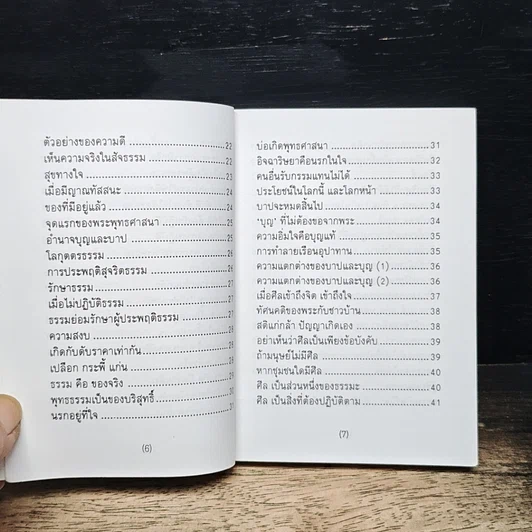 ตัวอย่างของความดี ........................ 22
เห็นความจริงในสัจธรรม .................... 22
สุขทางใจ ................................ 23
เมื่อมีญาณทัสสนะ ........................ 24
ของที่มีอยู่แล้ว ............................ 24
จุดแรกของพระพุทธศาสนา .................. 25
อำนาจบุญและบาป ........................ 25
โลกุตตรธรรม ............................ 26
การประพฤติสุจริตธรรม ....................
รักษาธรรม ..............................
เมื่อไม่ปฏิบัติธรรม ........................
ธรรมย่อมรักษาผู้ประพฤติธรรม ..............
ความสงบ ................................
เกิดกับดับราคาเท่ากัน ....................
เปลือก กระพี้ แก่น ........................
ธรรม คือ ของจริง ........................
พุทธธรรมเป็นของบริสุทธิ์ ..................
นรกอยู่ที่ใจ ..............................
(6)
บ่อเกิดพุทธศาสนา ........................ 31
อิจฉาริษยาคือนรกในใจ .................... 32
คนอื่นรับกรรมแทนไม่ได้ .................... 33
ประโยชน์ในโลกนี้ และโลกหน้า .............. 33
บาปจะหมดสิ้นไป .......................... 34
'บุญ' ที่ไม่ต้องขอจากพระ .................. 34
ความอิ่มใจคือบุญแท้ ...................... 35
การทำลายเรือนอุปาทาน .................... 35
ความแตกต่างของบาปและบุญ (1) ............ 36
ความแตกต่างของบาปและบุญ (2) ............ 36
เมื่อศีลเข้าถึงจิต เข้าถึงใจ ................ 37
ทัศนคติของพระกับชาวบ้าน .................. 38
สติแก่กล้า ปัญญาเกิดเอง .................. 38
อย่าเห็นว่าศีลเป็นเพียงข้อบังคับ ............ 39
ถ้ามนุษย์ไม่มีศีล .......................... 39
หากชุมชนใดมีศีล .......................... 40
ศีล เป็นส่วนหนึ่งของธรรมะ ................ 40
ศีล เป็นสิ่งที่ต้องปฏิบัติตาม ................ 41
(7)